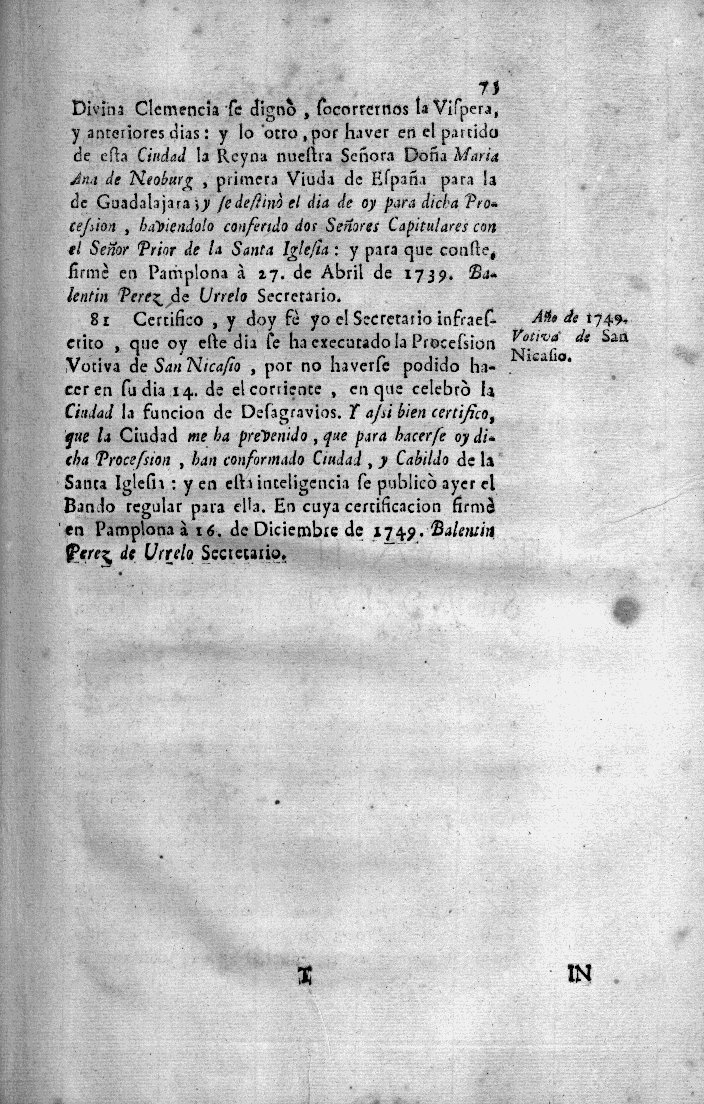 73
Divina Clemencia ſe dignò , ſocorrernos la Viſpera,
y anteriores dias : y lo otro , por haver en el partido
de eſta Ciudad la Reyna nueſtra Señora Doña Maria
Ana de Neoburg , primera Viuda de Eſpaña para la
de Guadalajara ; y ſe deſtinò el dia de oy para dicha Pro-
ceſsion , haviendolo conferido dos Señores Capitulares con
el Señor Prior de la Santa Igleſia : y para que conſte,
firmè en Pamplona à 27. de Abril de 1739. Ba-
lentin Perez de Urrelo Secretario.
81 Certifico , y doy fè yo el Secretario infraeſ-
crito , que oy eſte dia ſe ha executado la Proceſsion
Votiva de San Nicaſio , por no haverſe podido ha-
cer en ſu dia 14. de el corriente , en que celebrò la
Ciudad la funcion de Deſagravios. Y aſsi bien certifico,
que la Ciudad me ha prevenido , que para hacerſe oy di-
cha Proceſsion , han conformado Ciudad , y Cabildo de la
Santa Igleſia : y en eſta inteligencia ſe publicò ayer el
Bando regular para ella. En cuya certificacion firmè
en Pamplona à 16. de Diciembre de 1749. Balentin
Perez de Urrelo Secretario.
Año de 1749.
Votiva de San
Nicaſio.
T
IN